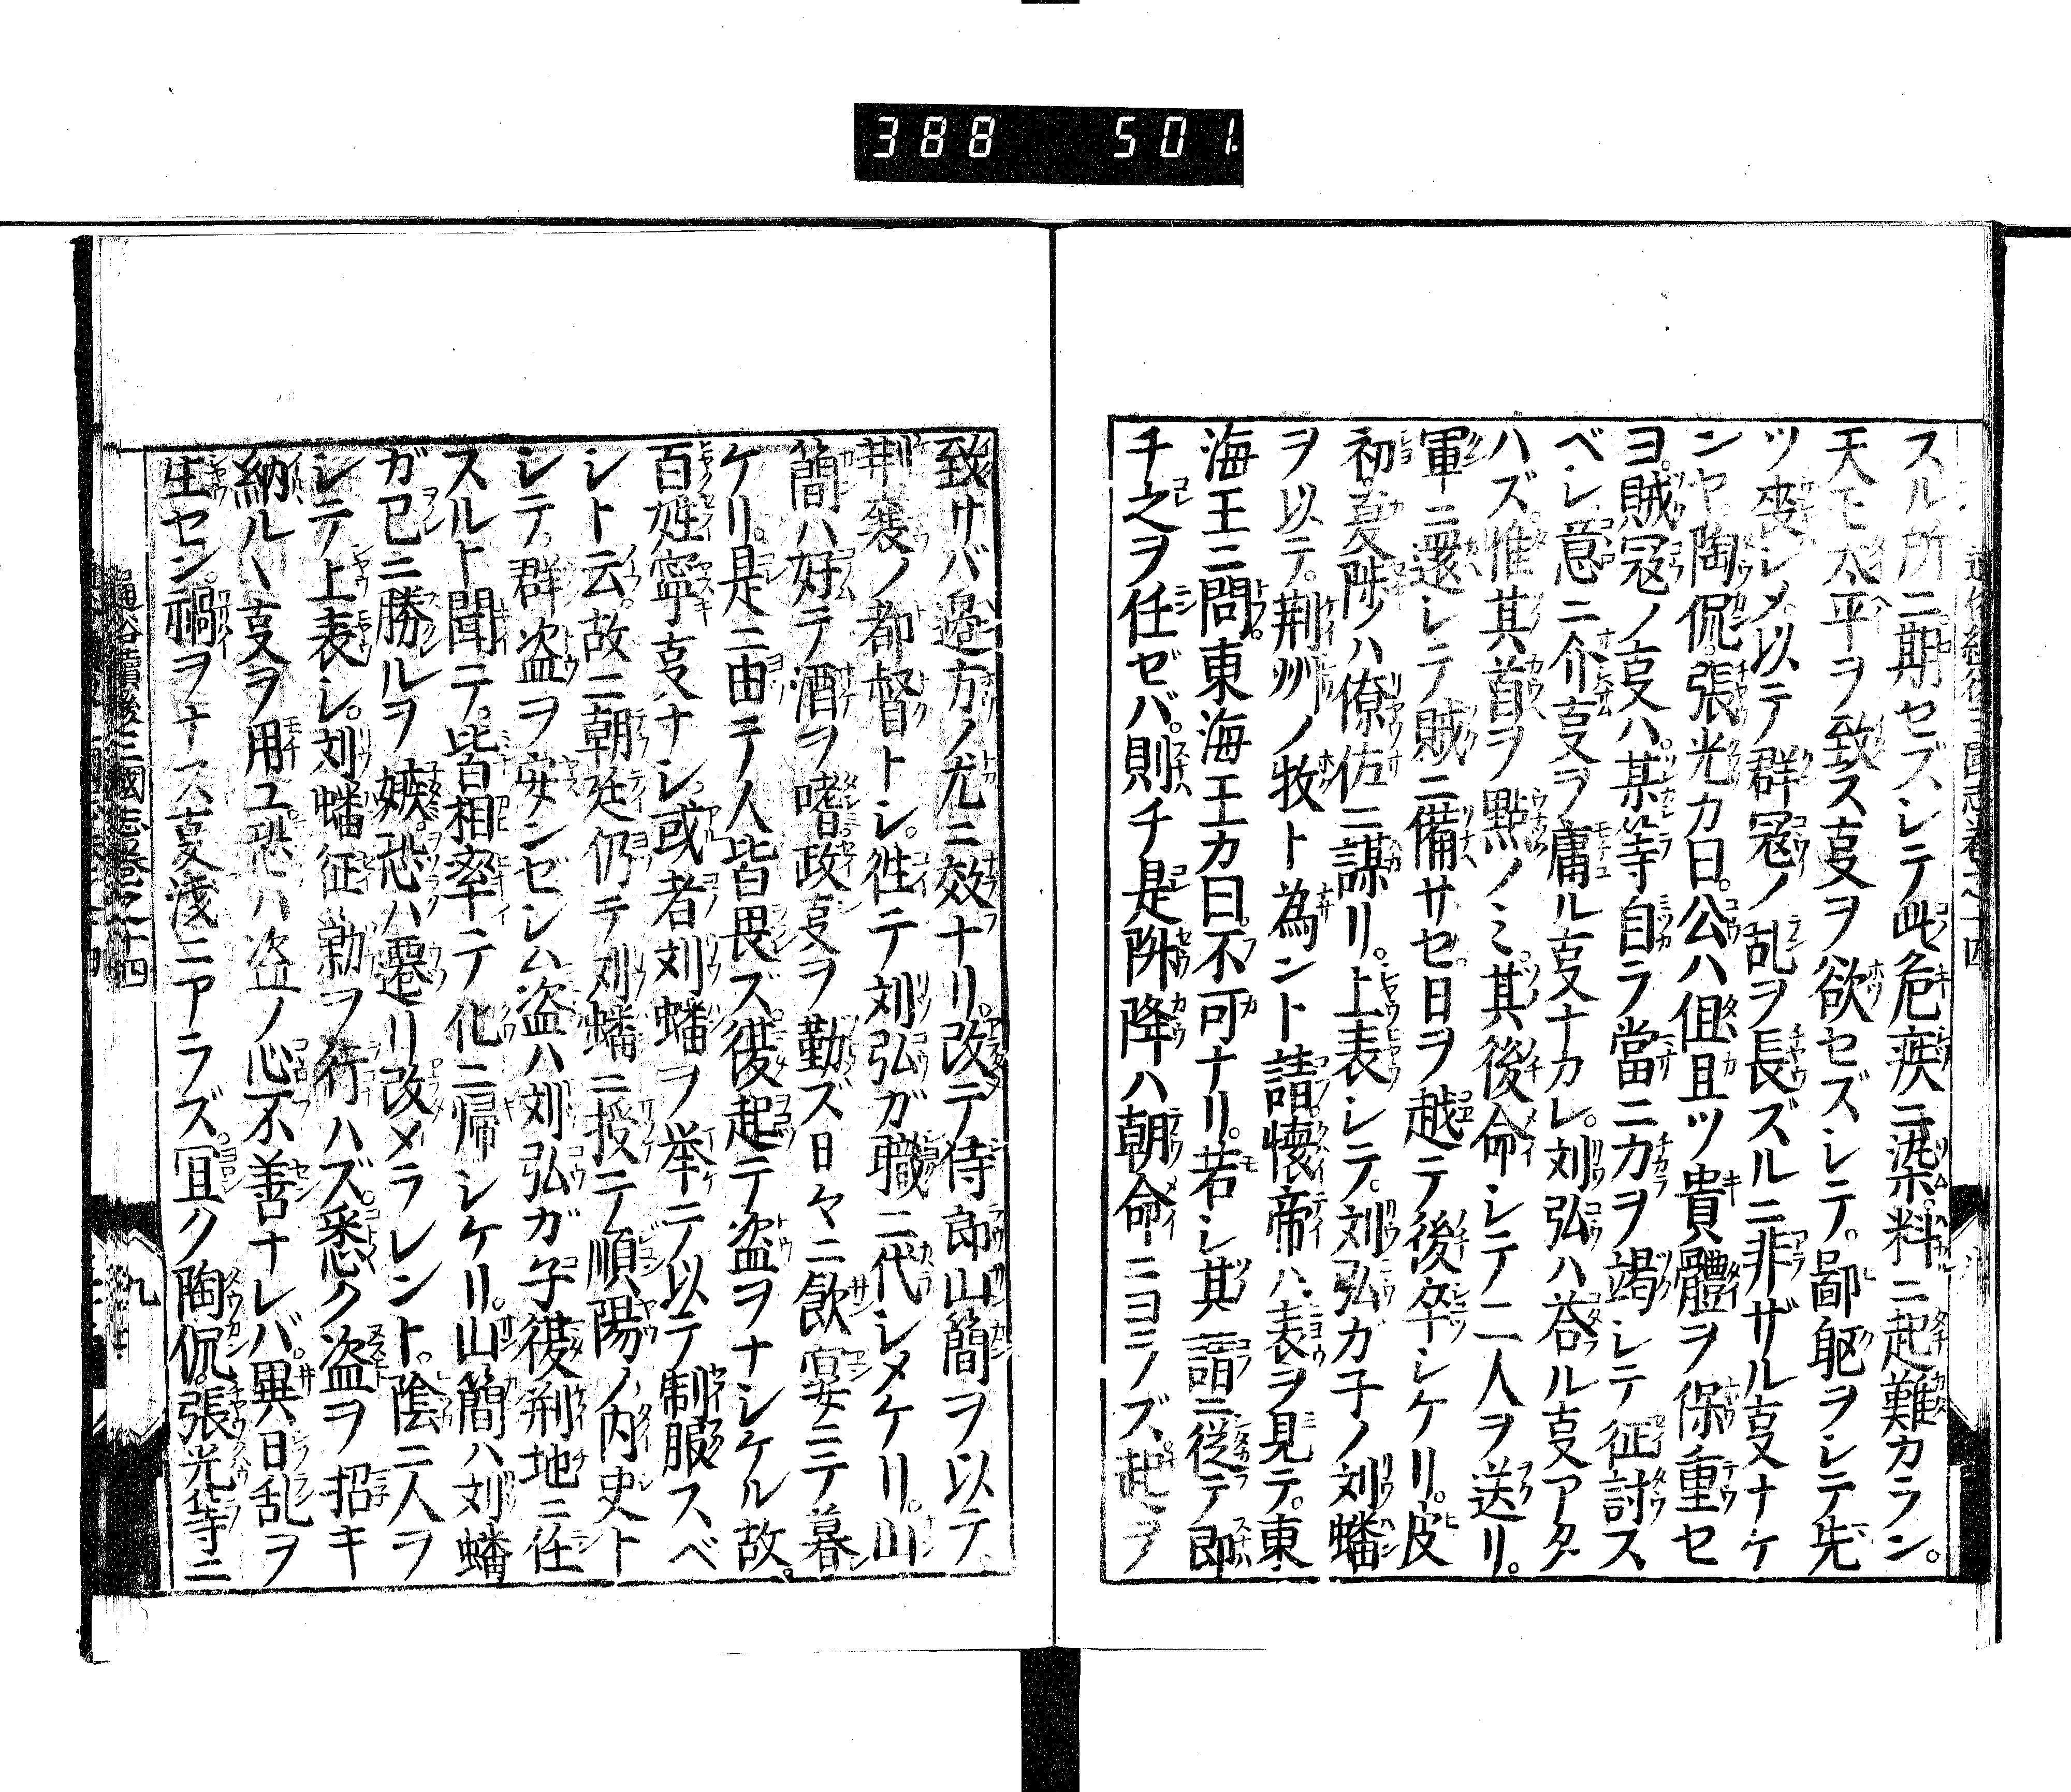 388 501
スル所ニ期セズシテ此危疾ニ漯料ニ起難カラン。
天モ太平ヲ致ス叓ヲ欲セズシテ。鄙躯ヲシテ先
ツ喪シメ以テ群冦ノ乱ヲ長ズルニ非ザル叓ナケ
ンヤ陶侃張光カ曰。公ハ但且ツ貴體ヲ保重セ
ヨ。賊冦ノ叓ハ某等自ラ當ニ力ヲ竭シテ征討ス
ベシ意ニ介叓ヲ庸ル叓ナカレ。刘弘ハ荅ル叓アタ
ハズ惟其首ヲ點ノミ。其後命シテ二人ヲ送リ。
軍ニ還シテ賊ニ備サセ日ヲ越テ後卒シケリ。皮
初夏陟ハ僚佐ニ謀リ。上表シテ。刘弘ガ子ノ刘蟠
ヲ以テ。荆州ノ牧ト為ント請懐帝ハ表ヲ見テ。東
海王ニ問。東海王カ曰。不可ナリ。若シ其請ニ従テ即
チ之ヲ任ゼバ。則チ是陞降ハ朝命ニヨラズ起ヲ
致サバ邉方ノ尤ニ效ナリ。改テ侍郎山簡ヲ以テ
荆襄ノ都督トシ。徃テ刘弘ガ職ニ代シメケリ。山
簡ハ好テ酒ヲ嗜政叓ヲ勤ズ日々ニ飲宴ニテ暮
ケリ。是ニ由テノ人皆畏ズ。復起テ盗ヲナシケル故。
百姓寧叓ナシ。或者刘蟠ヲ举テ以テ制服スベ
シト云。故ニ朝廷仍テ刘蟠ニ授テ順陽ノ内史ト
シテ。群盗ヲ安ンゼシム盗ハ刘弘ガ子復荆地ニ任
スルト聞テ。皆相率テ化ニ帰シケリ。山簡ハ刘蟠
ガ已ニ勝ルヲ嫉。恐ハ遷リ改メラレント。陰ニ人ヲ
シテ上表シ。刘蟠征勦ヲ行ハズ。悉ク盗ヲ招キ
納ルヽ叓ヲ用ユ。恐ハ盗ノ心不善ナレバ異日乱ヲ
生セン。禍ヲナス叓浅ニアラズ。冝ク陶侃。張光等ニ
通俗續後三國志巻之十四
九